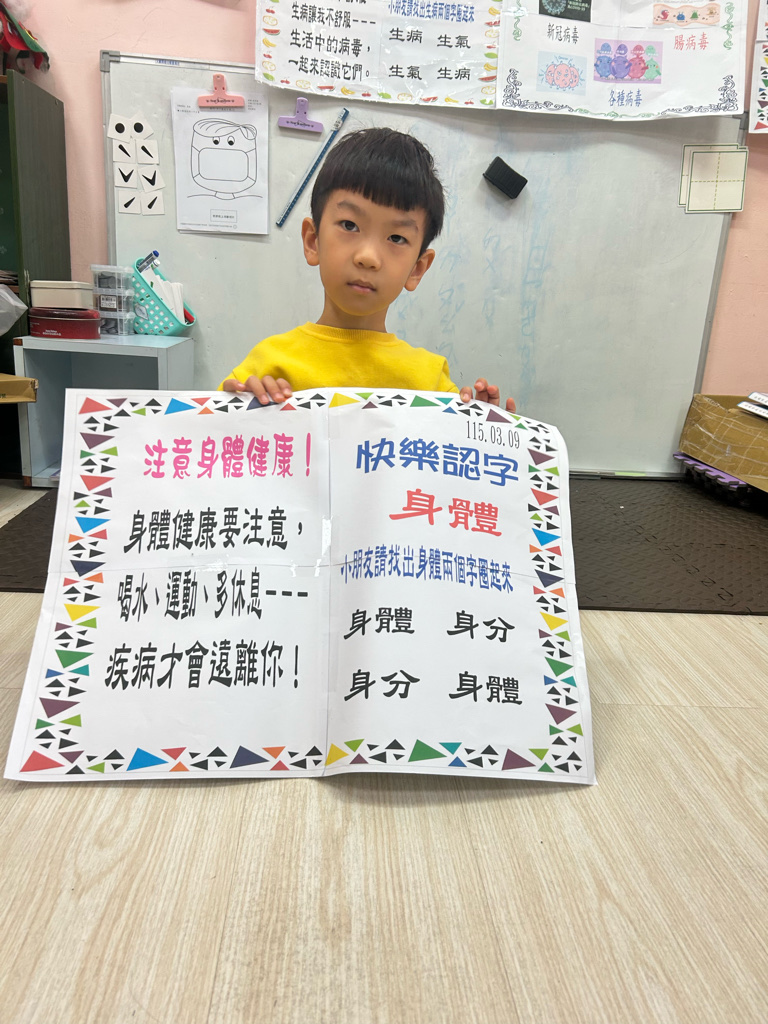 生病讓我不舒服---
生活中的病毒，
一起來認識它們。
小朋友請找出生病兩個字圈起來
生病 生氣
生氣 生病
新冠病毒
腸病毒
各種病毒
注意身體健康！
身體健康要注意，
喝水、運動、多休息---
疾病才會遠離你！
115.03.09
快樂認字
身體
小朋友請找出身體兩個字圈起來
身體 身分
身分 身體